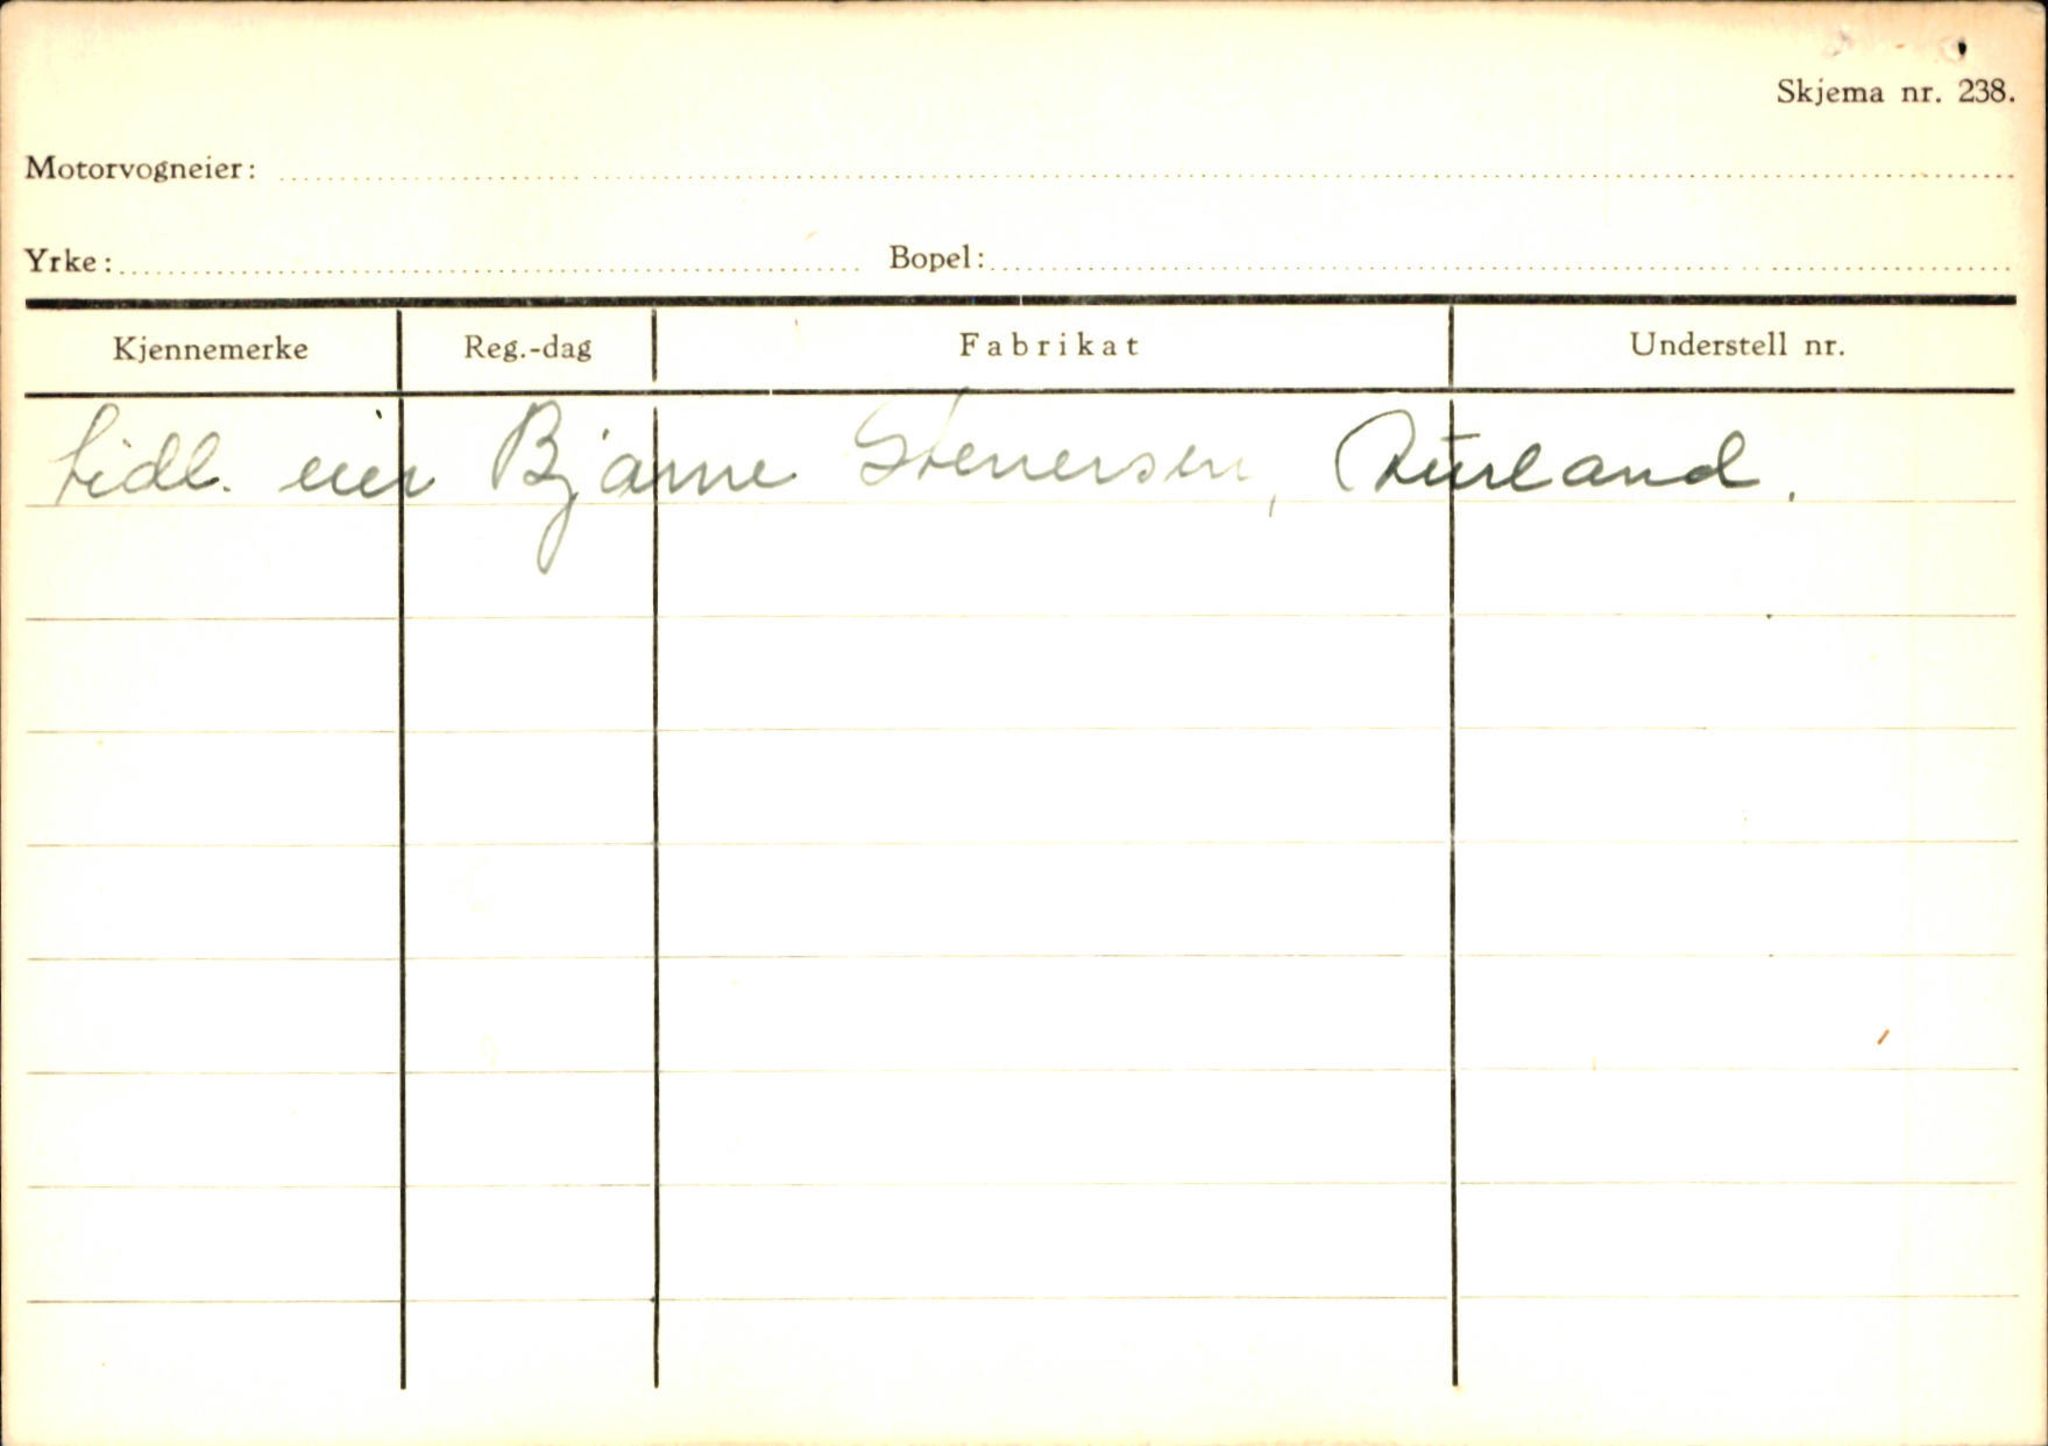 Skjema nr. 238.
Motorvogneier:
Yrke: Bopel:
Kjennemerke Reg.-dag Fabrikat Understell nr.
tidl. eier Bjarne Stenersen, Aurland.